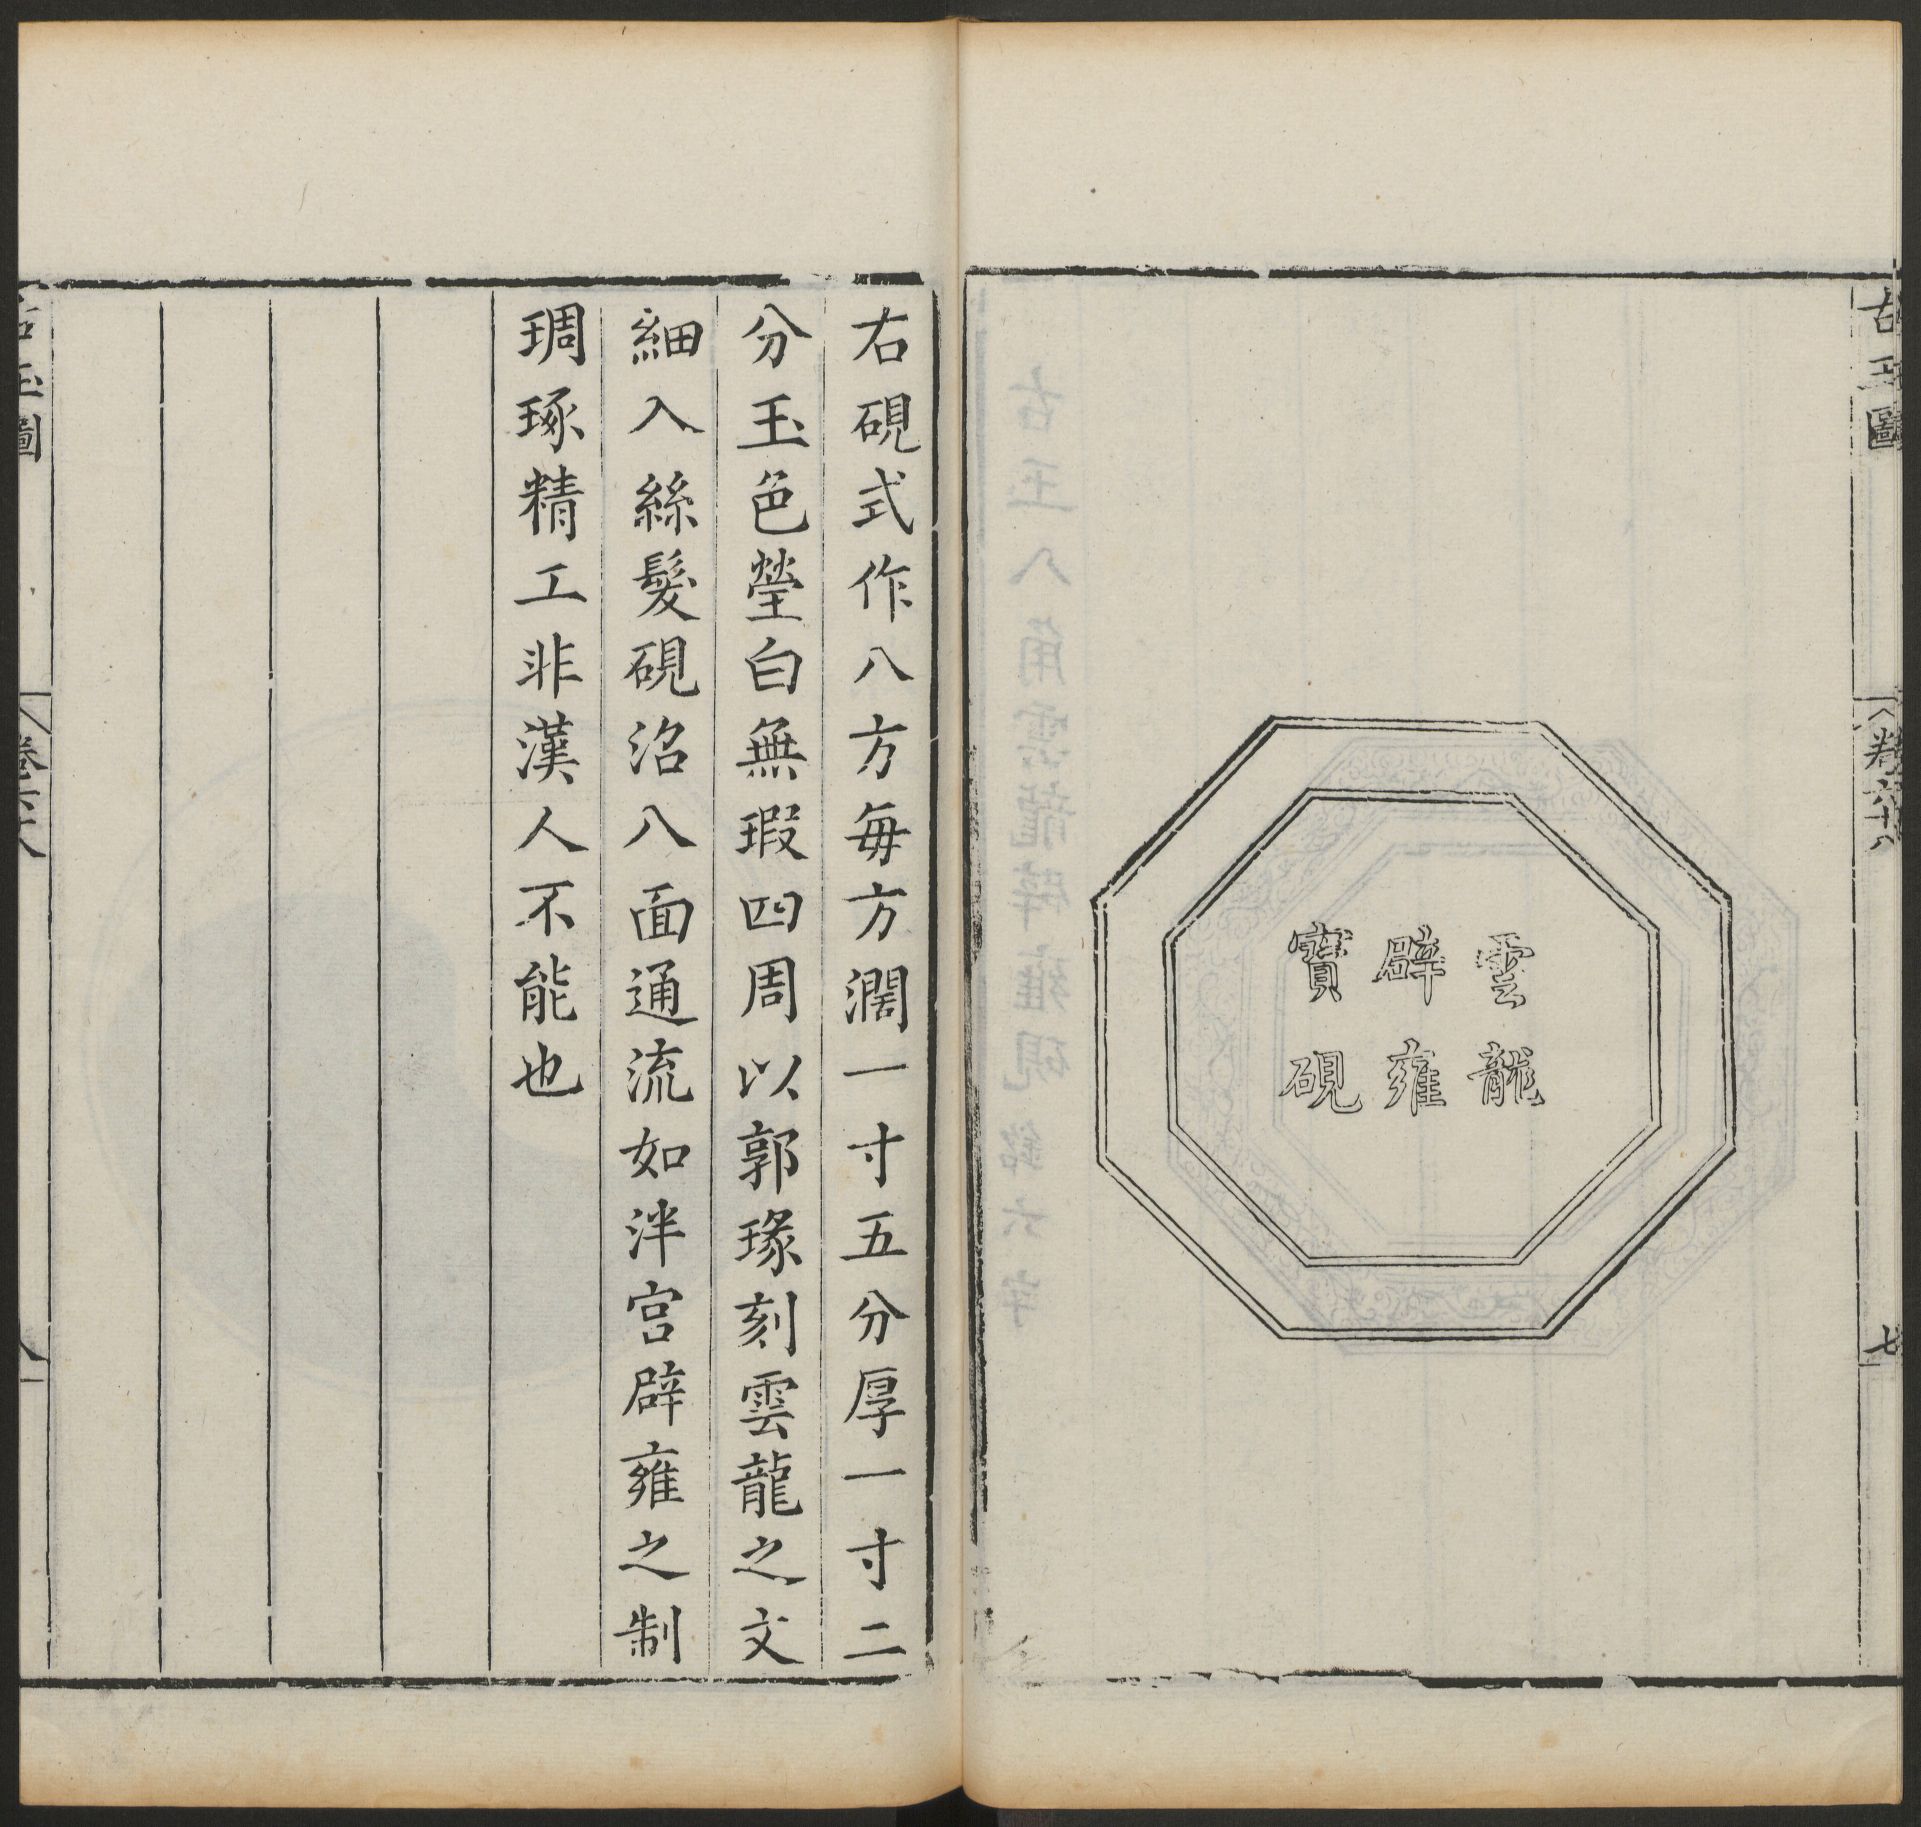 古玉圖
卷六十八
七
雲龍
辟雍
寶硯
右硯式作八方每方濶一寸五分厚一寸二
分玉色瑩白無瑕四周以郭瑑刻雲龍之文
細入絲髮硯沼八面通流如泮宮辟雍之制
琱琢精工非漢人不能也
古玉圖